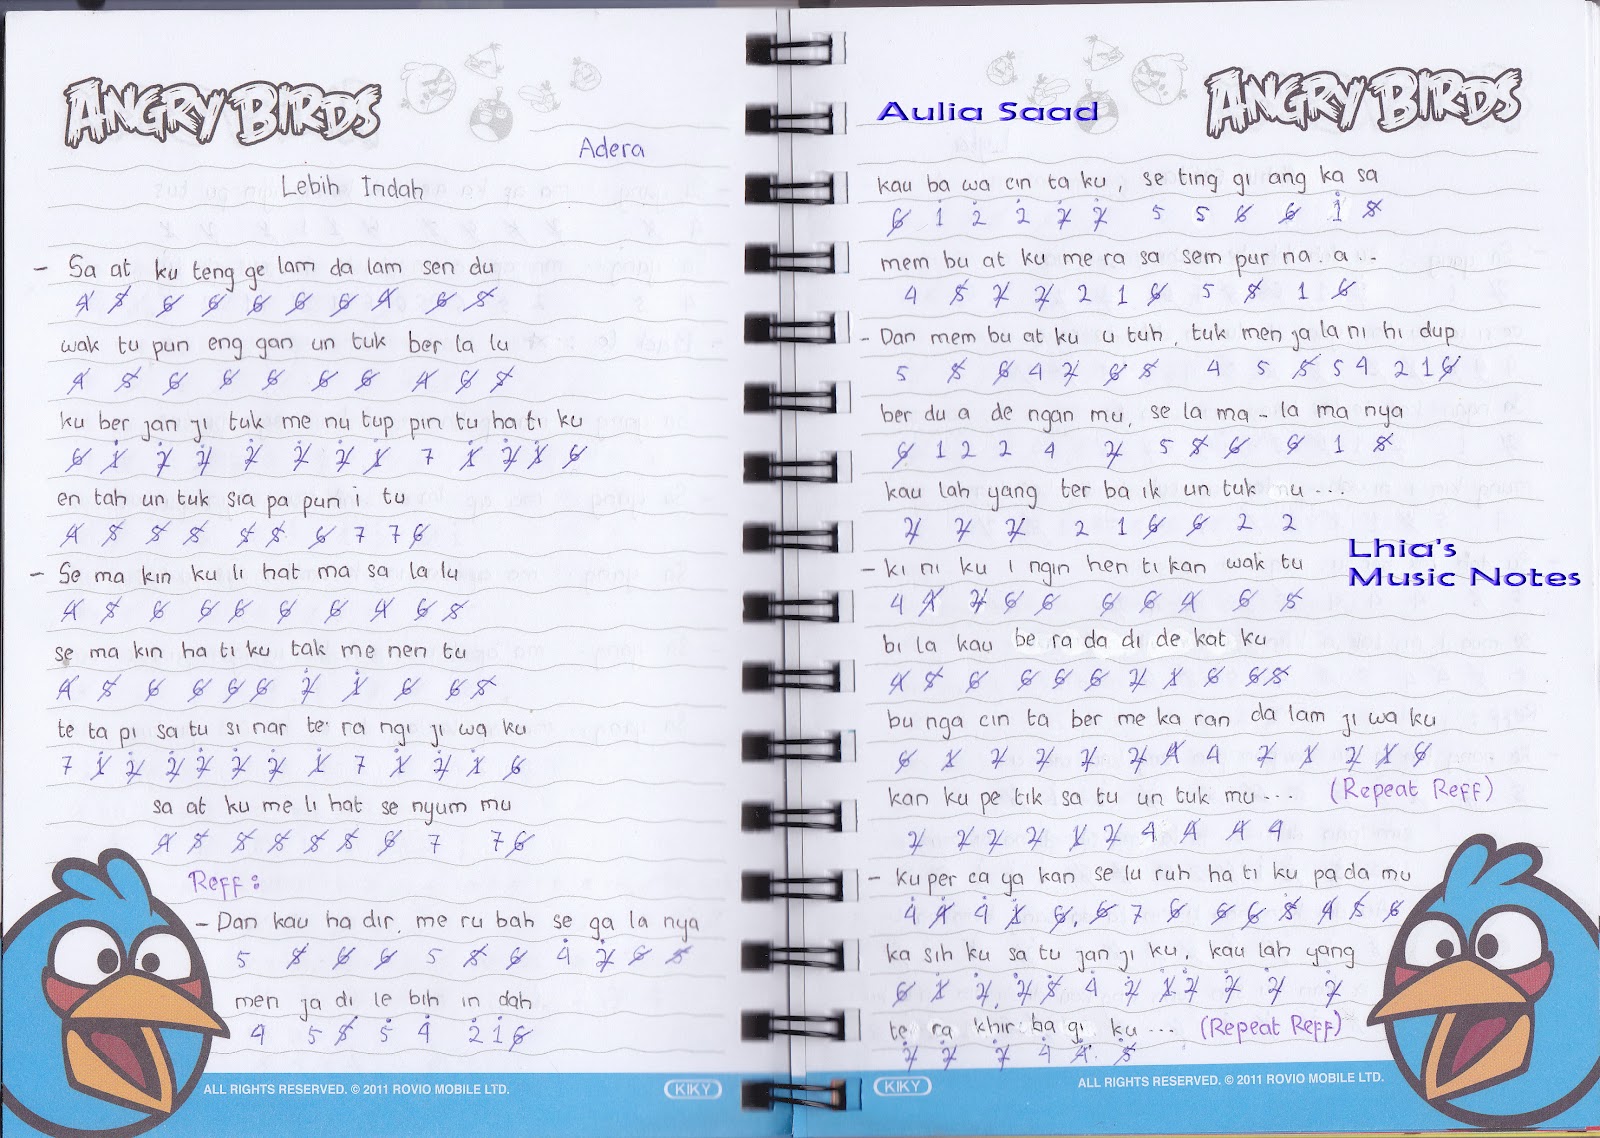 ANGRY BIRDS
Adera
Lebih Indah
- Sa at ku teng ge lam da lam sen du
4 5 6 6 6 6 6 4 6 5
wak tu pun eng gan un tuk ber la lu
4 5 6 6 6 6 6 4 6 5
ku ber jan ji tuk me nu tup pin tu ha ti ku
6 1 2 2 2 2 2 1 7 1 2 1 6
en tah un tuk sia pa pun i tu
4 5 5 5 5 5 6 7 7 6
- Se ma kin ku li hat ma sa la lu
4 5 6 6 6 6 6 4 6 5
se ma kin ha ti ku tak me nen tu
4 5 6 6 6 6 2 1 6 6 5
te ta pi sa tu si nar te ra ngi ji wa ku
7 1 2 2 2 2 2 1 7 1 2 1 6
sa at ku me li hat se nyum mu
4 5 5 5 5 5 6 7 7 6
Reff :
- Dan kau ha dir, me ru bah se ga la nya
5 5 6 6 5 5 6 4 2 6 5
men ja di le bih in dah
4 5 5 5 4 2 1 6
ALL RIGHTS RESERVED. © 2011 ROVIO MOBILE LTD.
KIKY
Aulia Saad
ANGRY BIRDS
kau ba wa cin ta ku, se ting gi ang ka sa
6 1 2 2 2 2 5 5 6 6 1 5
mem bu at ku me ra sa sem pur na . a . .
4 5 2 2 2 1 6 5 5 1 6
- Dan mem bu at ku u tuh, tuk men ja la ni hi dup
5 5 6 4 2 6 5 4 5 5 5 4 2 1 6
ber du a de ngan mu, se la ma - la ma nya
6 1 2 2 4 2 5 5 6 6 1 5
kau lah yang ter ba ik un tuk mu ...
2 2 2 2 1 6 6 2 2
Lhia's
Music Notes
- ki ni ku i ngin hen ti kan wak tu
4 4 2 6 6 6 6 4 6 5
bi la kau be ra da di de kat ku
4 5 6 6 6 6 2 1 6 6 5
bu nga cin ta ber me ka ran da lam ji wa ku
6 1 2 2 2 2 4 4 2 1 2 1 6
kan ku pe tik sa tu un tuk mu ... (Repeat Reff)
2 2 2 2 1 2 4 4 4 4
- Ku per ca ya kan se lu ruh ha ti ku pa da mu
4 4 4 1 6 6 7 6 6 6 5 4 5 6
ka sih ku sa tu jan ji ku, kau lah yang
6 1 2 2 5 4 2 1 2 2 2 2
te ra khir ba gi ku ... (Repeat Reff)
2 2 2 4 4 5
KIKY
ALL RIGHTS RESERVED. © 2011 ROVIO MOBILE LTD.